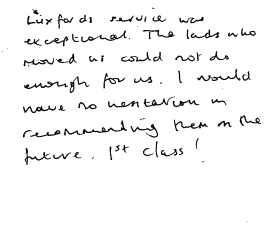 Luxfords service was
exceptional. The lads who
moved us could not do
enough for us. I would
have no hesitation in
recommending them in the
future. 1st class!